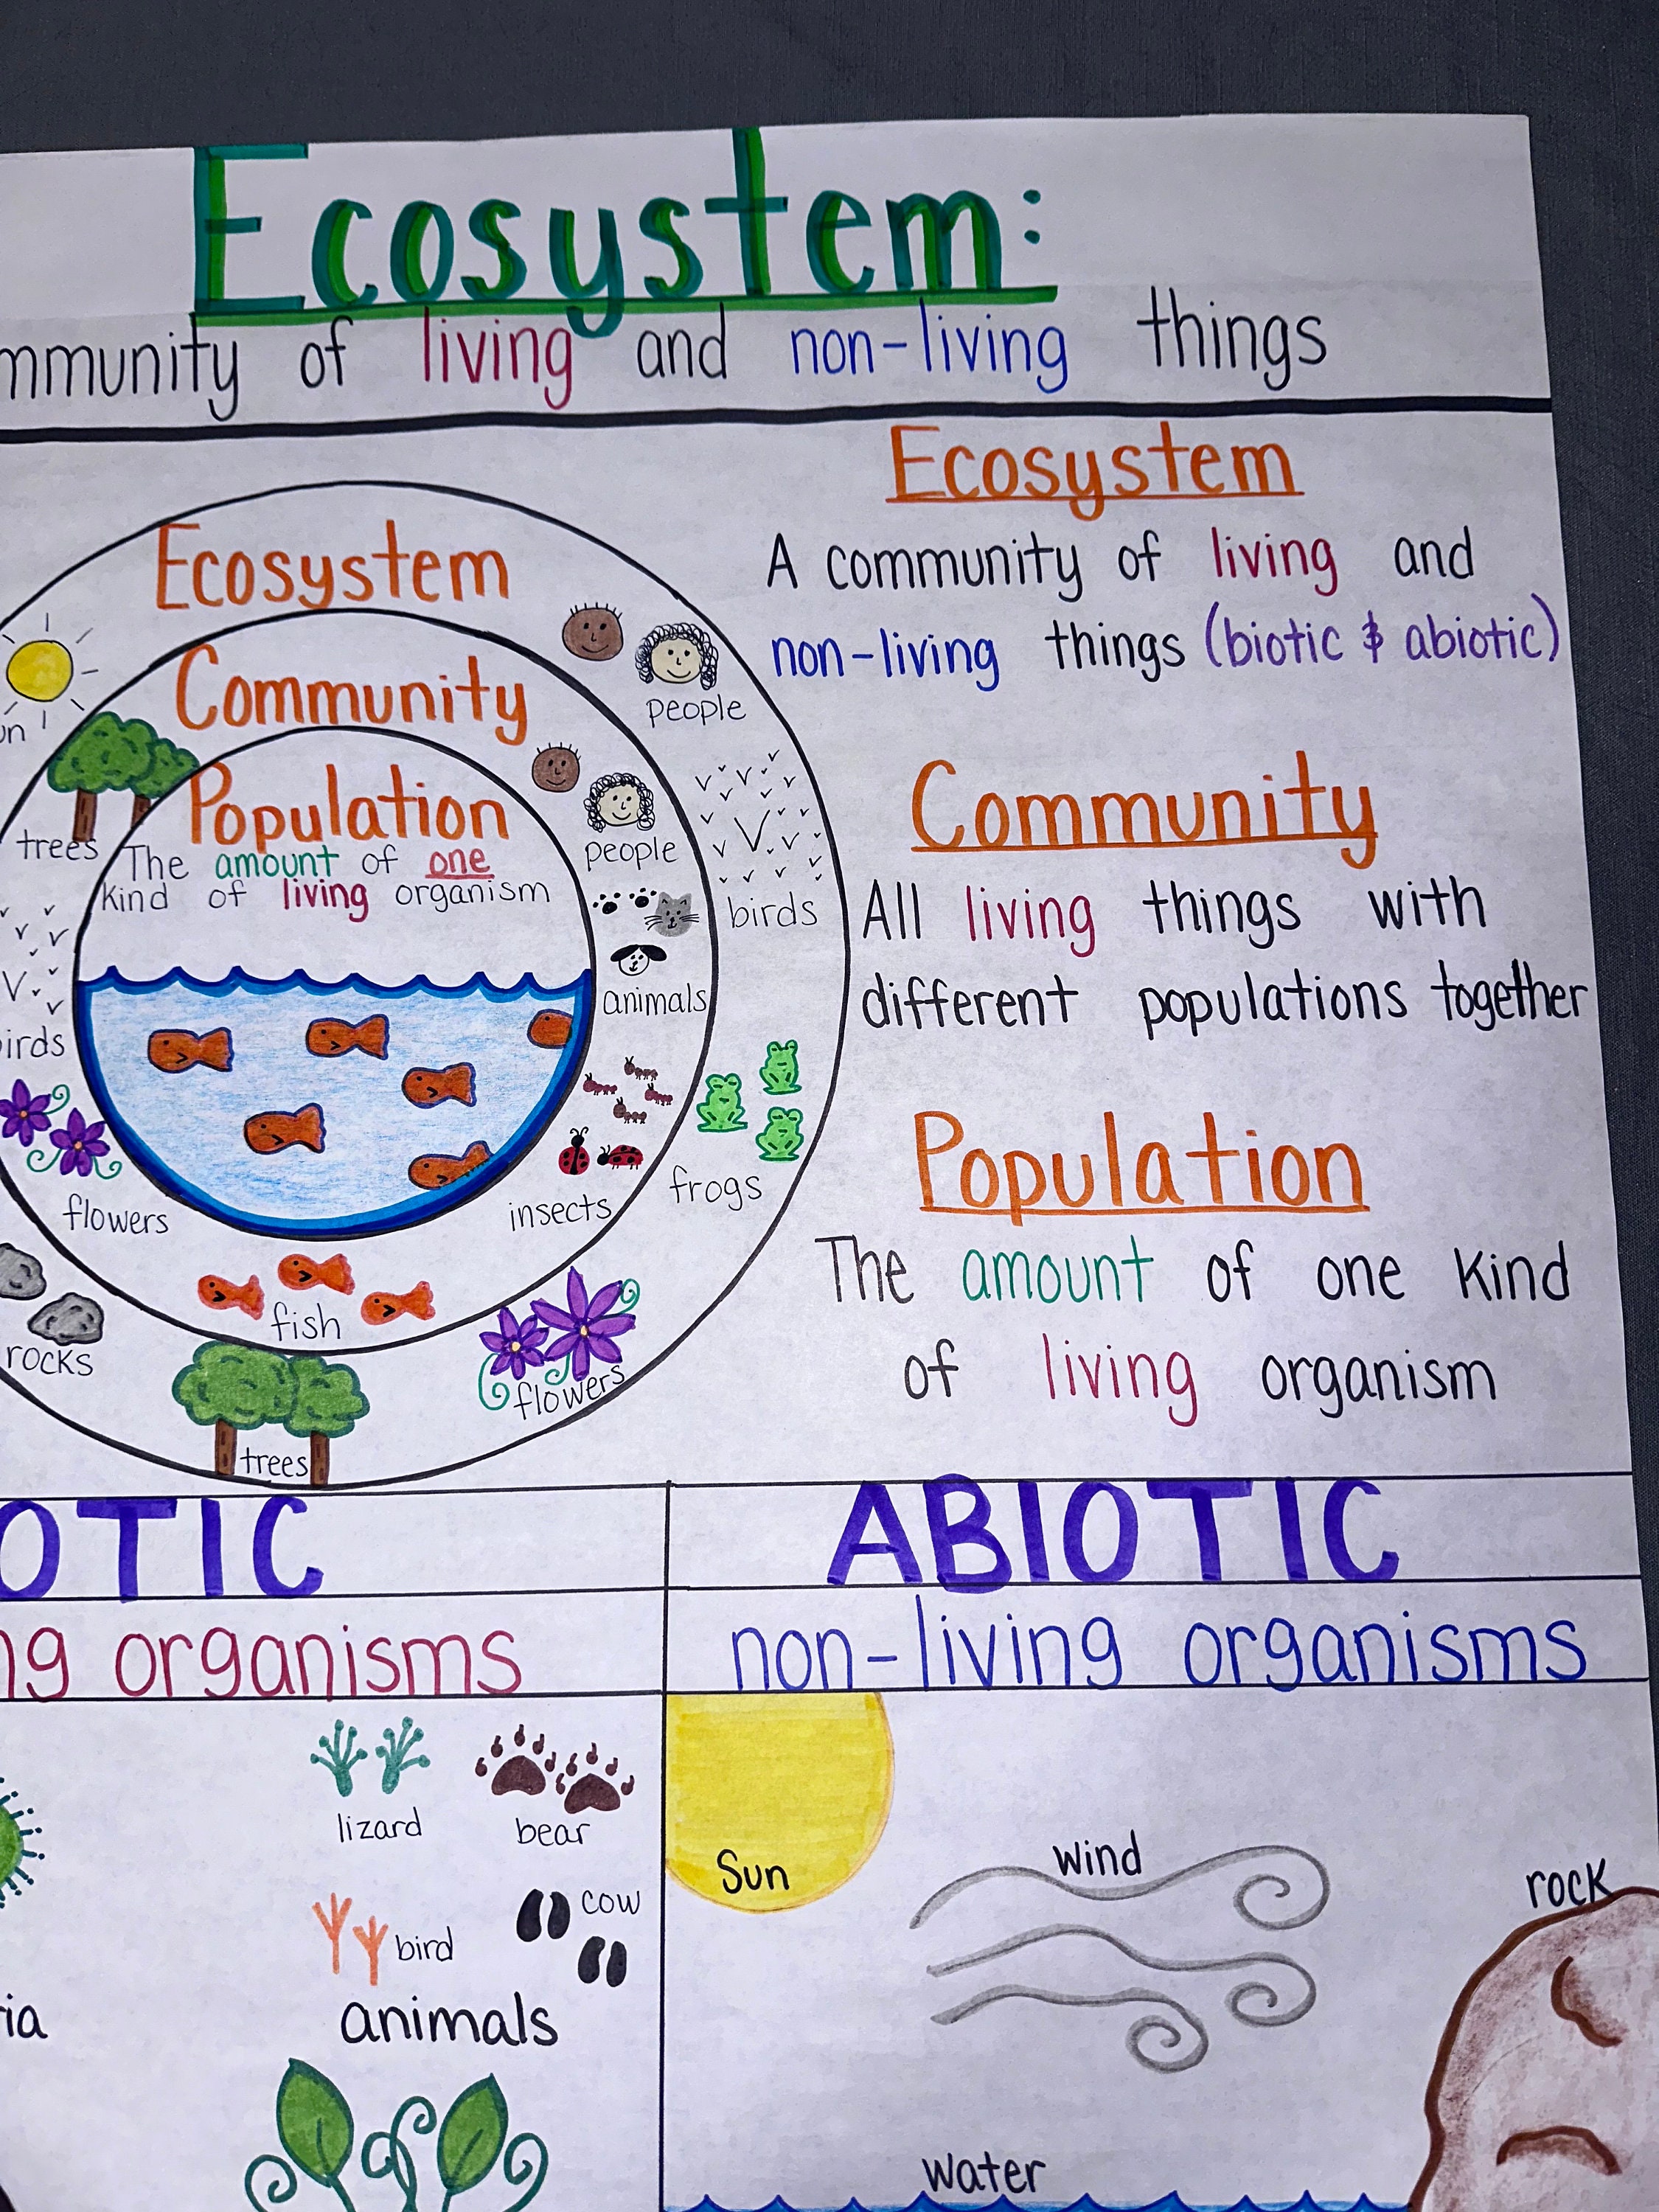 Ecosystem:
mmunity of living and non-living things
Ecosystem
Community
Population
The amount of one
kind of living organism
un
trees
irds
flowers
rocks
people
people
birds
animals
insects
frogs
fish
flowers
trees
Ecosystem
A community of living and
non-living things (biotic & abiotic)
Community
All living things with
different populations together
Population
The amount of one kind
of living organism
OTIC
ng organisms
lizard
bear
bird
cow
ia
animals
ABIOTIC
non-living organisms
Sun
wind
rock
water